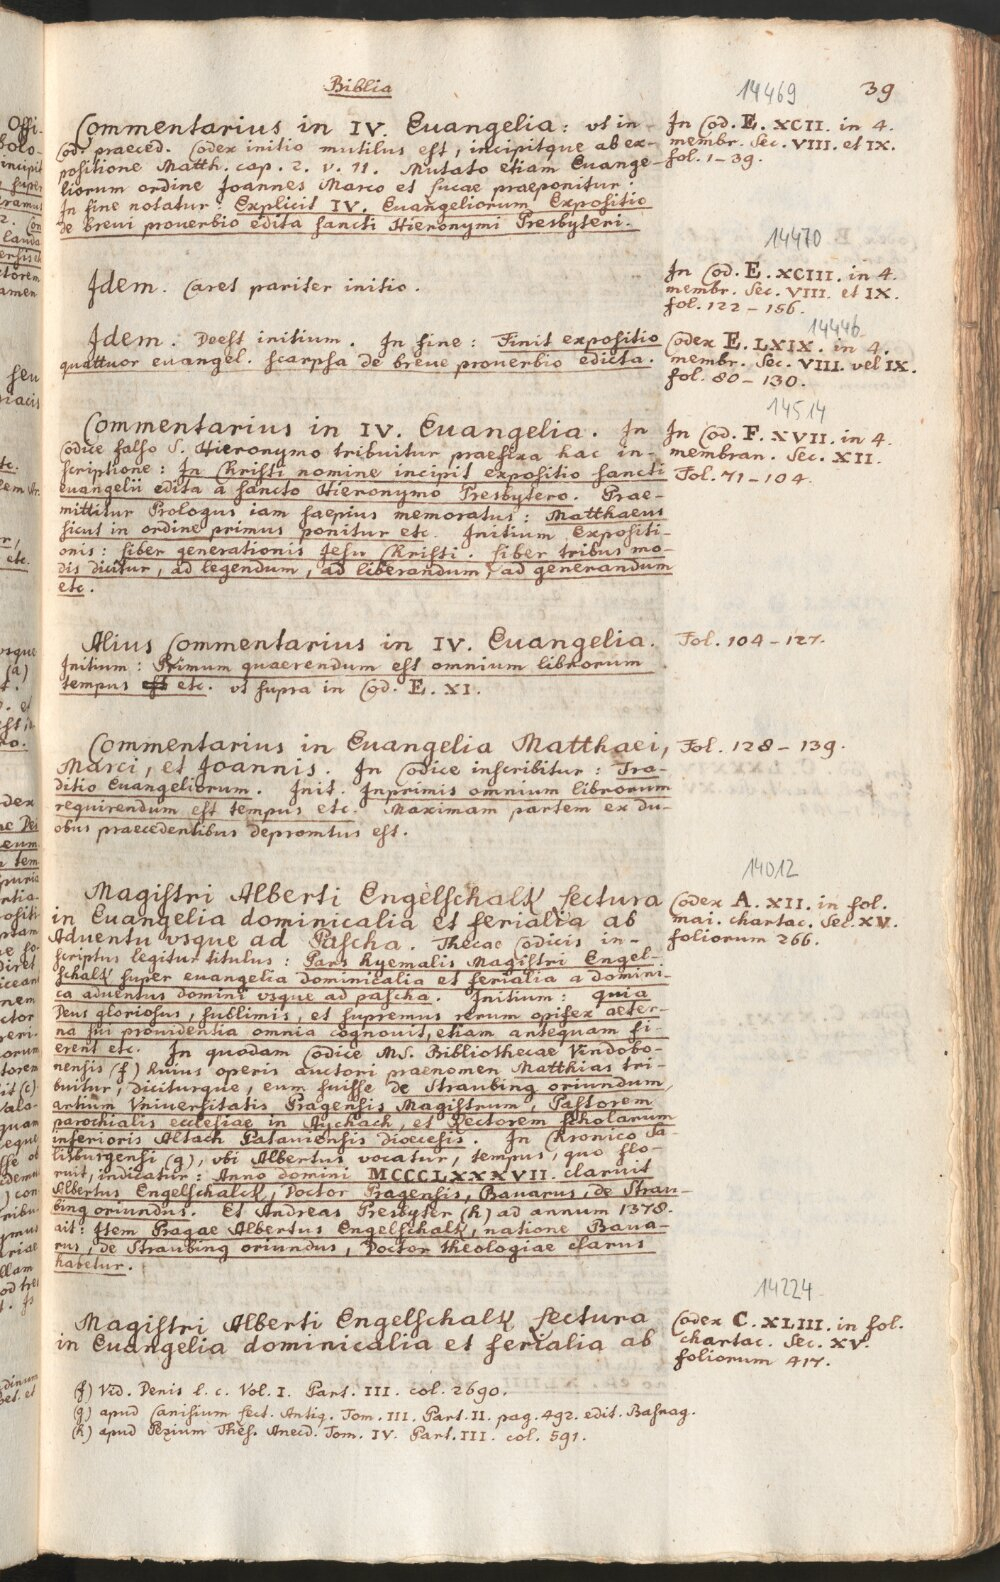 Biblia
39
14469
Commentarius in IV. Euangelia: vt in
Cod. praeced. Codex initio mutilus est, incipitque ab ex-
positione Matth. cap. 2. v. 11. Mutato etiam Euange-
liorum ordine Joannes Marco et Lucae praeponitur:
In fine notatur: Explicit IV. Euangeliorum Expositio
de breui prouerbio edita sancti Hieronymi Presbyteri.
In Cod. E. XCII. in 4.
membr. Sec. VIII. et IX.
fol. 1-39.
14470
Idem. Caret pariter initio.
In Cod. E. XCIII. in 4.
membr. Sec. VIII. et IX.
fol. 122-156.
14446
Idem. Deest initium. In fine: Finit expositio
quattuor euangel. scarpsa de breue prouerbio edicta.
Codex E. LXIX. in 4.
membr. Sec. VIII. vel IX.
fol. 80-130.
14514
Commentarius in IV. Euangelia. In
Codice falso S. Hieronymo tribuitur praefixa hac in-
scriptione: In Christi nomine incipit expositio sancti
euangelii edita a sancto Hieronymo Presbytero. Prae-
mittitur Prologus iam saepius memoratus: Matthaeus
sicut in ordine primus ponitur etc. Initium Expositi-
onis: Liber generationis Jesu Christi. Liber tribus mo-
dis dicitur, ad legendum, ad liberandum, ad generandum
etc.
In Cod. F. XVII. in 4.
membran. Sec. XII.
Fol. 71-104.
Alius Commentarius in IV. Euangelia.
Initium: Primum quaerendum est omnium librorum
tempus etc. vt supra in Cod. E. XI.
Fol. 104-127.
Commentarius in Euangelia Matthaei,
Marci, et Joannis. In Codice inscribitur: Tra-
ditio Euangeliorum. Init. Inprimis omnium librorum
requirendum est tempus etc. Maximam partem ex du-
obus praecedentibus depromtus est.
Fol. 128-139.
14012
Magistri Alberti Engelschalk Lectura
in Euangelia dominicalia et ferialia ab
Aduentu vsque ad Pascha. Thecae Codicis in-
scriptus legitur titulus: Pars hyemalis Magistri Engel-
schalk super euangelia dominicalia et ferialia a domini-
ca aduentus domini vsque ad pascha. Initium: Quia
Deus gloriosus, sublimis, et supremus rerum opifex aeter-
na sui prouidentia omnia cognouit, etiam antequam fi-
erent etc. In quodam Codice MS. Bibliothecae Vindobo-
nensis (f) huius operis auctori praenomen Matthias tri-
buitur, diciturque, eum fuisse de Straubing oriundum,
artium Vniuersitatis Pragensis Magistrum, Pastorem
parochialis ecclesiae in Aychach, et Rectorem scholarum
inferioris Altach Patauiensis dioecesis. In Chronico Sa-
lisburgensi (g), vbi Albertus vocatur, tempus, quo flo-
ruit, indicatur: Anno domini MCCCLXXXVII. claruit
Albertus Engelschalck, Doctor Pragensis, Bauarus, de Strau-
bing oriundus. Et Andreas Presbyter (h) ad annum 1378.
ait: Item Pragae Albertus Engelschalk, natione Baua-
rus, de Straubing oriundus, Doctor theologiae clarus
habetur.
Codex A. XII. in fol.
mai. chartac. Sec. XV.
foliorum 266.
14224
Magistri Alberti Engelschalk Lectura
in Euangelia dominicalia et ferialia ab
Codex C. XLIII. in fol.
chartac. Sec. XV.
foliorum 417.
(f) Vid. Denis l. c. Vol. I. Part. III. col. 2690.
(g) apud Canisium Lect. Antiq. Tom. III. Part. II. pag. 492. edit. Basnag.
(h) apud Pezium Thes. Anecd. Tom. IV. Part. III. col. 591.